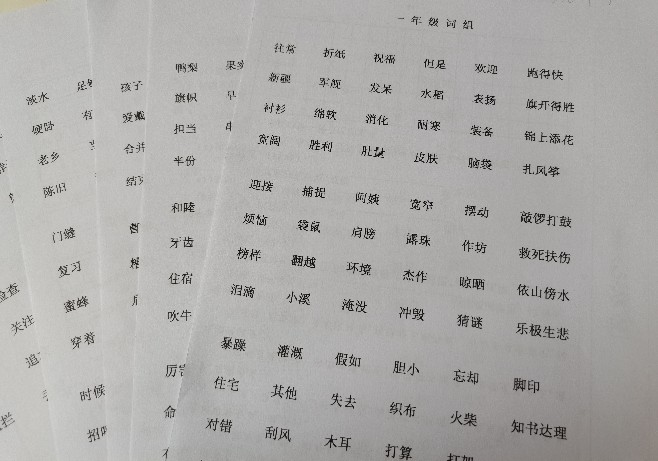 一年级词组
往常 折纸 祝福 但是 欢迎 跑得快
新疆 军舰 发呆 水稻 表扬 旗开得胜
衬衫 绵软 消化 耐寒 装备 锦上添花
宽阔 胜利 肚量 皮肤 脑袋 扎风筝
迎接 捕捉 阿姨 宽窄 摆动 敲锣打鼓
烦恼 袋鼠 肩膀 露珠 作坊 救死扶伤
榜样 翻越 环境 杰作 晾晒 依山傍水
泪滴 小溪 淹没 冲毁 猜谜 乐极生悲
暴躁 灌溉 假如 胆小 忘却 脚印
住宅 其他 失去 织布 火柴 知书达理
对错 刮风 木耳 打算 打架
鸭梨 果实
旗帜 早
扣当
半份
和睦
牙齿
住宿
吹牛
厉害
命
孩子
爱戴
合并
结实
淡水 足够
硬卧 有
老乡
陈旧
门缝
复习
蜜蜂
穿着
时候
招呼
检查
关注
追
栏